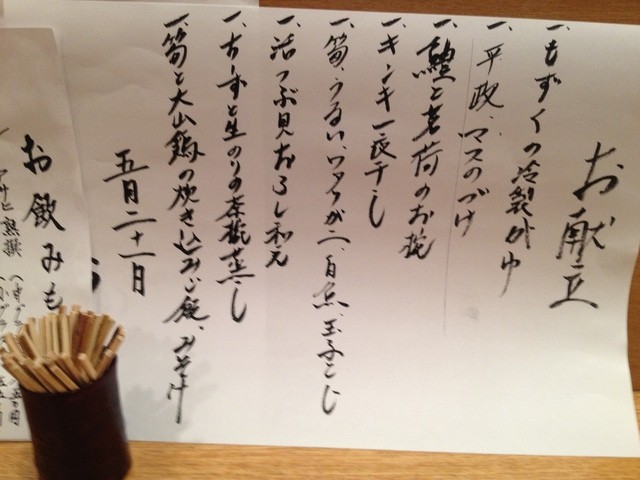 お献立
一、もずくの冷製おゆ
一、平政、マスのづけ
一、鱧と茗荷のお椀
一、キンキ一夜干し
一、筍、うるい、ワタリガニ、白魚、玉子とじ
一、活つぶ貝おろし和え
一、うずと生のりの茶椀蒸し
一、筍と大山鶏の炊き込みご飯、みそ汁
五月二十一日
お飲みも
アサヒ熟撰